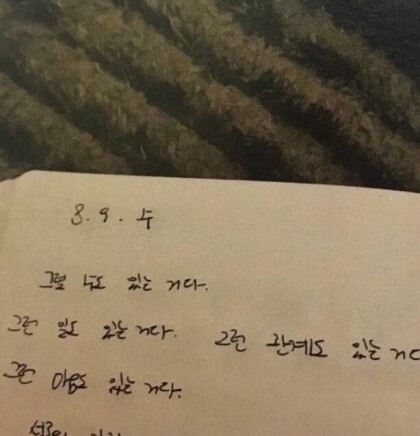 8. 9. 수
그럴 수도 있는 거다.
그런 일도 있는 거다. 그런 관계도 있는 거다
그런 마음도 있는 거다.